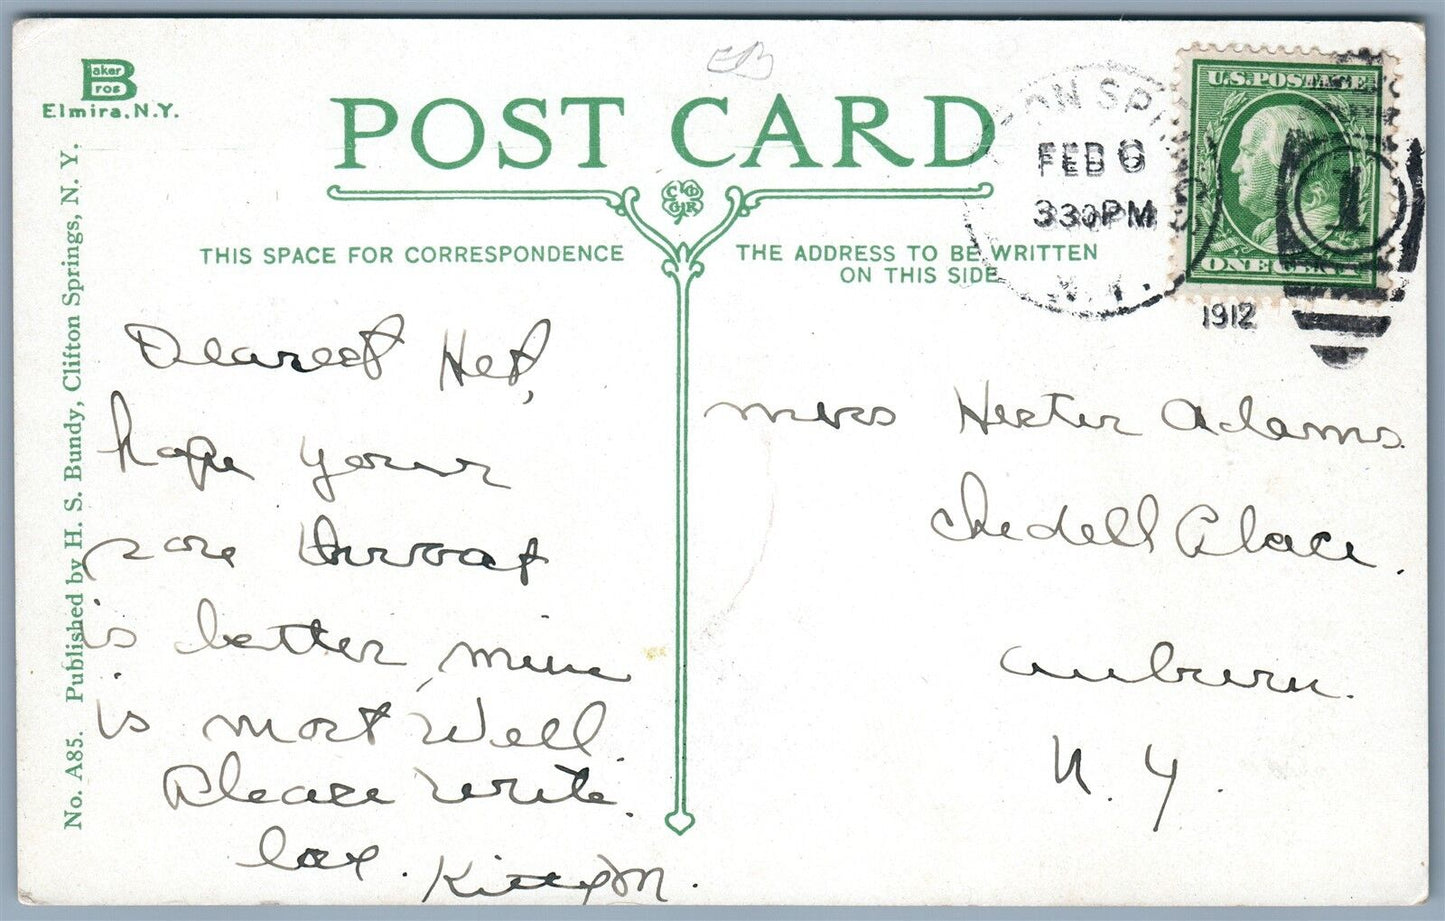 Baker
Bros
Elmira, N.Y.
No. A85. Published by H. S. Bundy, Clifton Springs, N. Y.
POST CARD
THIS SPACE FOR CORRESPONDENCE
THE ADDRESS TO BE WRITTEN
ON THIS SIDE
TON SPRINGS
FEB 6
330PM
N.Y.
1912
U.S. POSTAGE
ONE CENT
1
Dearest Het,
hope your
sore throat
is better, mine
is most well.
Please write.
Kitty M.
Miss Hester Adams.
Chedell Place.
Auburn.
N. Y.